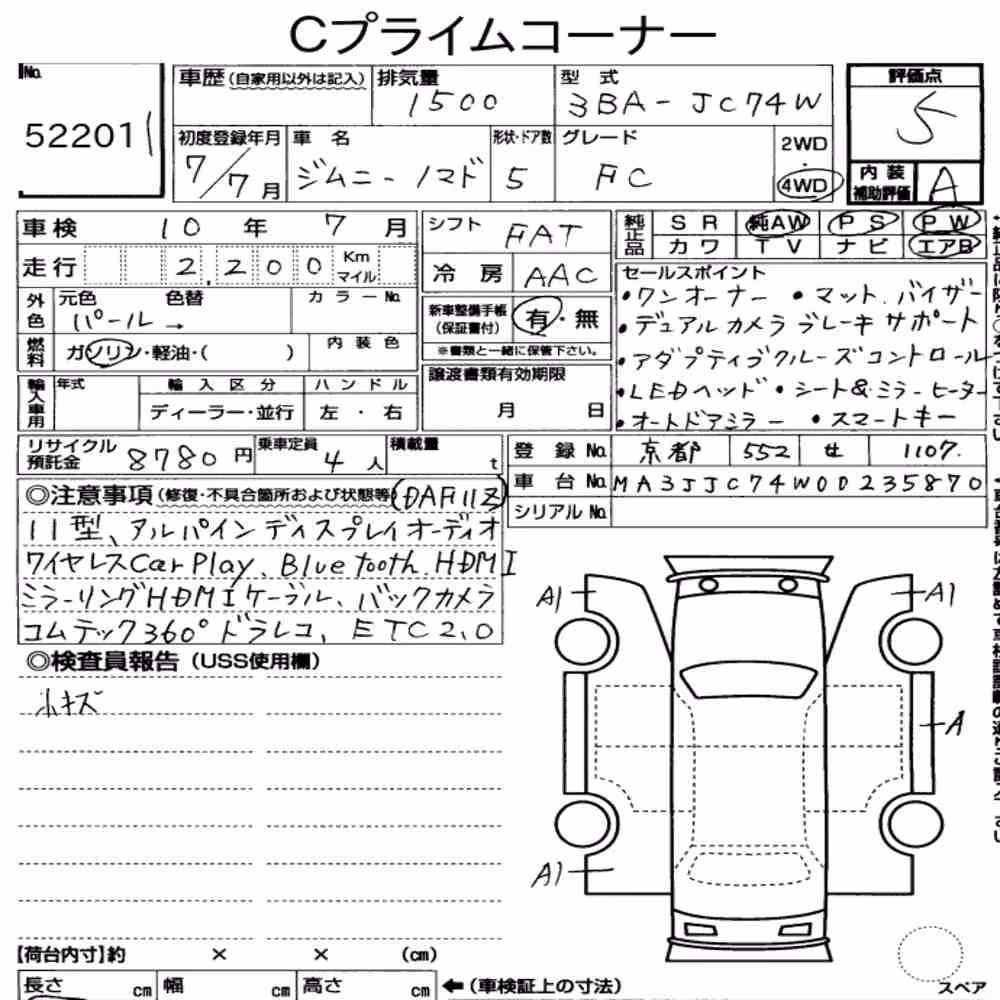 Cプライムコーナー
No.
52201
車歴(自家用以外は記入)
排気量
1500
型式
3BA-JC74W
評価点
5
初度登録年月
7/7月
車名
ジムニーノマド
形状・ドア数
5
グレード
FC
2WD
・
4WD
内装
補助評価
A
車検 10年 7月
シフト
FAT
純正品
SR 純AW PS PW
カワ TV ナビ エアB
走行 2,200 Km
マイル
冷房
AAC
セールスポイント
・ワンオーナー ・マット、バイザー
・デュアルカメラブレーキサポート
・アダプティブクルーズコントロール
・LEDヘッド ・シート&ミラーヒーター
・オートドアミラー ・スマートキー
外色
元色 色替
パール→
カラーNo.
新車整備手帳
(保証書付)
有・無
※書類と一緒に保管下さい。
燃料
ガソリン・軽油・( )
内装色
譲渡書類有効期限
月 日
輸入車用
年式
輸入区分
ディーラー・並行
ハンドル
左・右
リサイクル
預託金
8780円
乗車定員
4人
積載量
t
登録No.
京都 552 せ 1107.
車台No.
MA3JJC74W00235870
シリアルNo.
◎注意事項(修復・不具合箇所および状態等)
DAF11Z
11型、アルパインディスプレイオーディオ
ワイヤレスCarPlay、Bluetooth、HDMI
ミラーリングHDMIケーブル、バックカメラ
コムテック360°ドラレコ、ETC2.0
◎検査員報告(USS使用欄)
小キズ
A1
A1
A
A1
【荷台内寸】約 × × (cm)
長さ cm 幅 cm 高さ cm
←(車検証上の寸法)
スペア